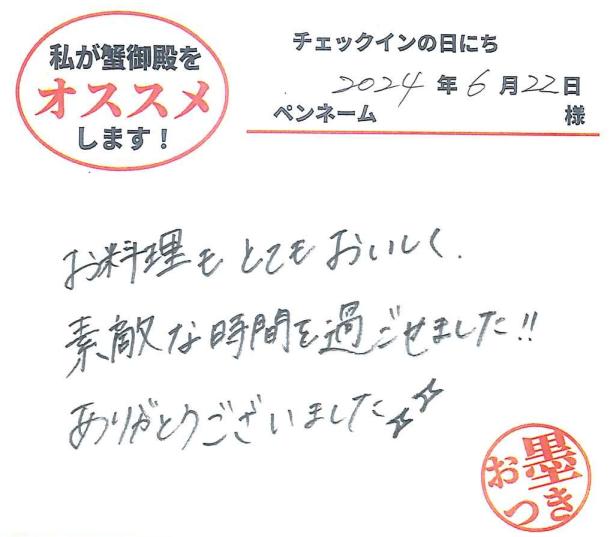 私が蟹御殿を
オススメ
します！
チェックインの日にち
2024年6月22日
ペンネーム 様
お料理もとてもおいしく、
素敵な時間を過ごせました!!
ありがとうございました
お墨つき